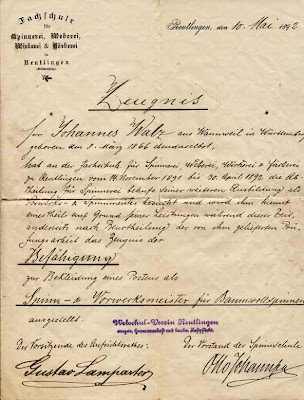 Fachschule
für
Spinnerei, Weberei,
Wirkerei & Färberei
in Reutlingen
Reutlingen, den 10. Mai 1892
Zeugnis
für Johannes Walz aus Wannweil in Württemberg
geboren den 3. März 1866 ebendaselbst,
hat an der Fachschule für Spinnerei, Weberei, Wirkerei & Färberei
zu Reutlingen vom 14. November 1891 bis 30. April 1892 die Ab-
theilung für Spinnerei behufs seiner weiteren Ausbildung als
Vorwerks- & Spinnmeister besucht und wird ihm hiemit
einestheils auf Grund seiner Leistungen während dieser Zeit,
anderseits nach Beurtheilung der von ihm gelieferten Prü-
fungsarbeit das Zeugnis der
Befähigung
zur Bekleidung eines Postens als
Spinn- & Vorwerksmeister für Baumwollspinnerei
ausgestellt.
Webschul-Verein Reutlingen
Der Vorsitzende des Aufsichtsrathes:
Der Vorstand der Spinnschule
Gustav Lamparter
Otto Johannsen